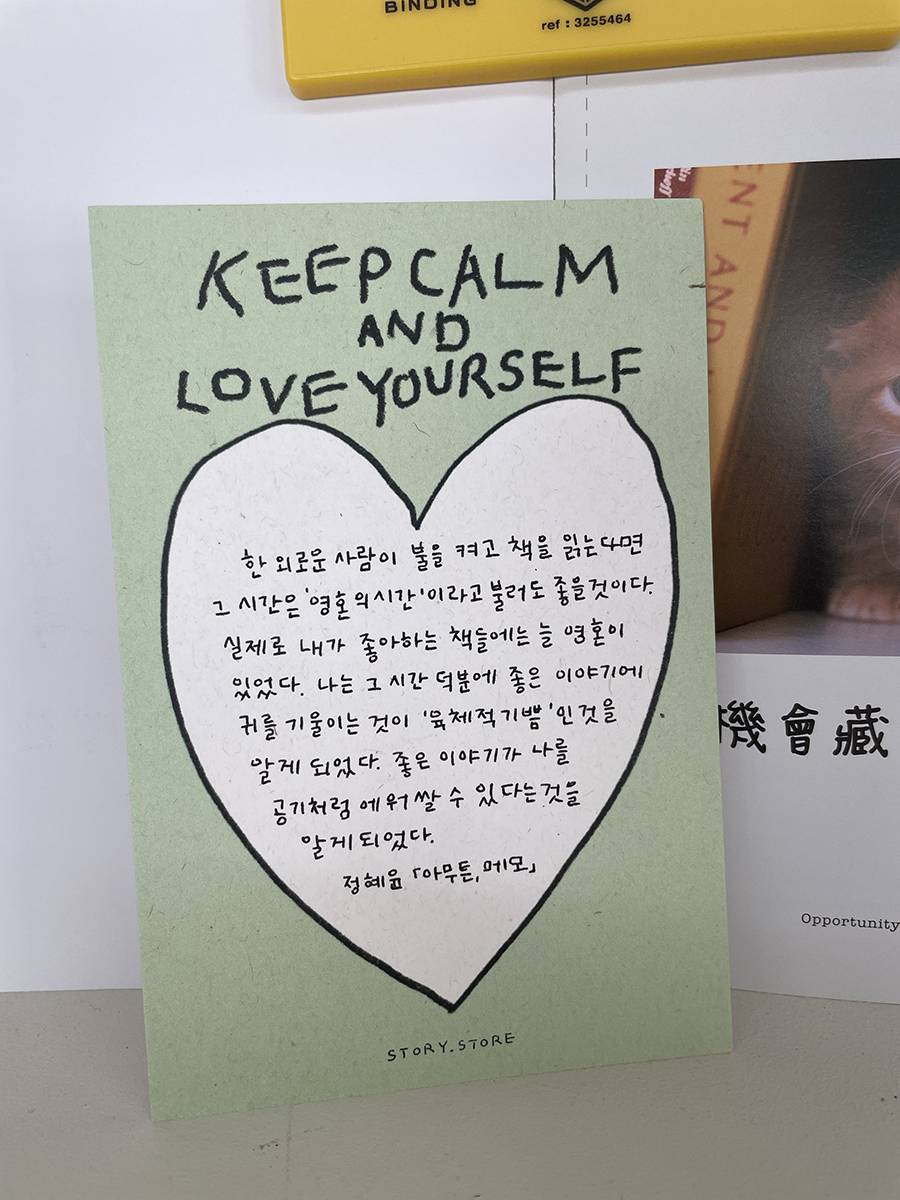 BINDING
ref : 3255464
ENT AND
KEEP CALM
AND
LOVE YOURSELF
한 외로운 사람이 불을 켜고 책을 읽는다면
그 시간은 '영혼의 시간'이라고 불러도 좋을것이다.
실제로 내가 좋아하는 책들에는 늘 영혼이
있었다. 나는 그 시간 덕분에 좋은 이야기에
귀를 기울이는 것이 '육체적 기쁨'인 것을
알게 되었다. 좋은 이야기가 나를
공기처럼 에워쌀 수 있다는 것을
알게 되었다.
정혜윤 「아무튼, 메모」
STORY.STORE
機會藏
Opportunity